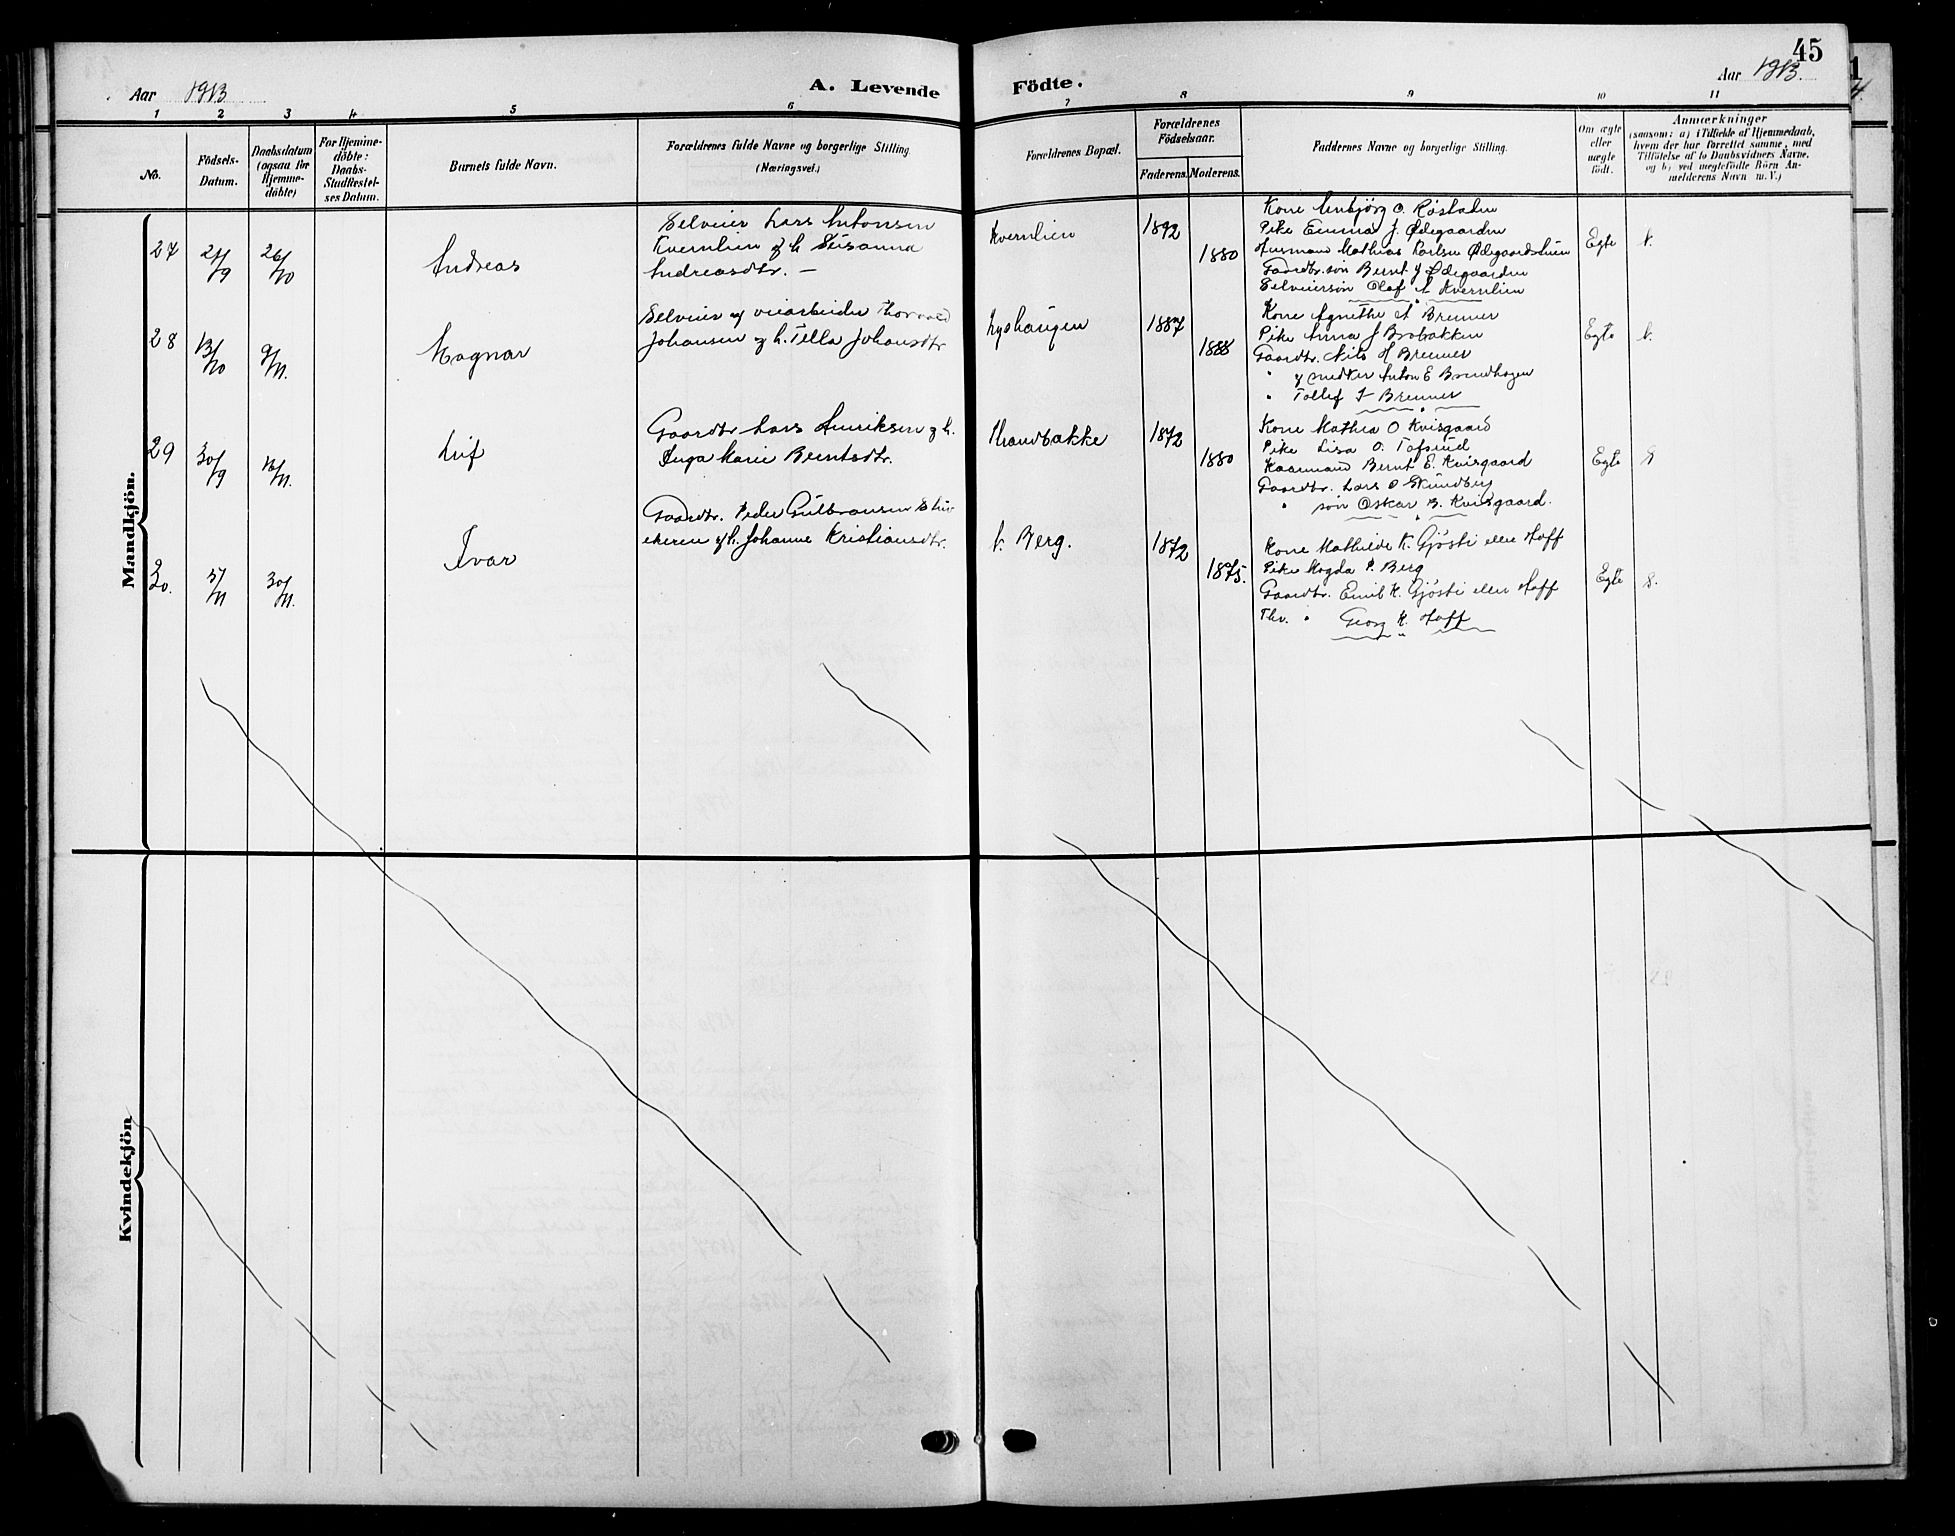 45
Aar 1913
A. Levende Födte.
Aar 1913.
1 2 3 4 5 6 7 8 9 10 11
No.
Födsels-
Datum.
Daabsdatum
(ogsaa for
Hjemme-
döbte)
For Hjemme-
döbte:
Daabs-
Stadfæstel-
ses Datum.
Barnets fulde Navn.
Forældrenes fulde Navne og borgerlige Stilling
(Næringsvei.)
Forældrenes Bopæl.
Forældrenes
Födselsaar.
Faderens. Moderens.
Faddernes Navne og borgerlige Stilling.
Om ægte
eller
uægte
födt.
Anmærkninger
(saasom: a) i Tilfælde af Hjemmedaab,
hvem der har forrettet samme, med
Tilföielse af to Daabsvidners Navne,
og b) ved uegtefödte Börn An-
melderens Navn m. V.)
Mandkjön.
27
26/10
Andreas
Selveier Lars Antonsen
Kvernlien og h. Susanna
Andreasdtr. —
Kvernlien
1892
1880
Kone Anbjörg O. Røstaden
Pike Emma J. Ødegaarden
Husmand Mathias Karlsen Ødegaardslien
Gaardbr. søn Bernt J Ødegaarden
Selveiersøn Olaf A Kvernlien
Egte
28
13/10
9/11.
Magnar
Selveier og veiarbeider Thorvald
Johansen og h. Tella Johansdtr
Lyshaugen
1887
1888
Kone Agnethe A Brenner
Pike Anna J Brobakken
Gaardbr. Nils H Brenner
" og snedker Anton E Brendhagen
" Tollef J Brenner
Egte
29
30/9
16/11.
Leif
Gaardbr Lars Henriksen og h.
Inga Marie Berntsdtr.
Strandbakke
1872
1880
Kone Mathea O Kvisgaard
Pike Lisa O. Tofsrud
Kaarmand Bernt E. Kvisgaard
Gaardbr. Lars O Skundberg
" søn Oskar B. Kvisgaard.
Egte
30.
30/11.
Ivar
Gaardbr. Peder Gulbransen
og h. Johanne Kristiansdtr.
Berg.
1872
1875.
Kone Mathilde K. Gjösti eller Hoff
Pike Magda P. Berg
Gaardbr. Emil K. Gjösti eller Hoff
Thv. " Georg K. Hoff
Egte
S.
Kvindekjön